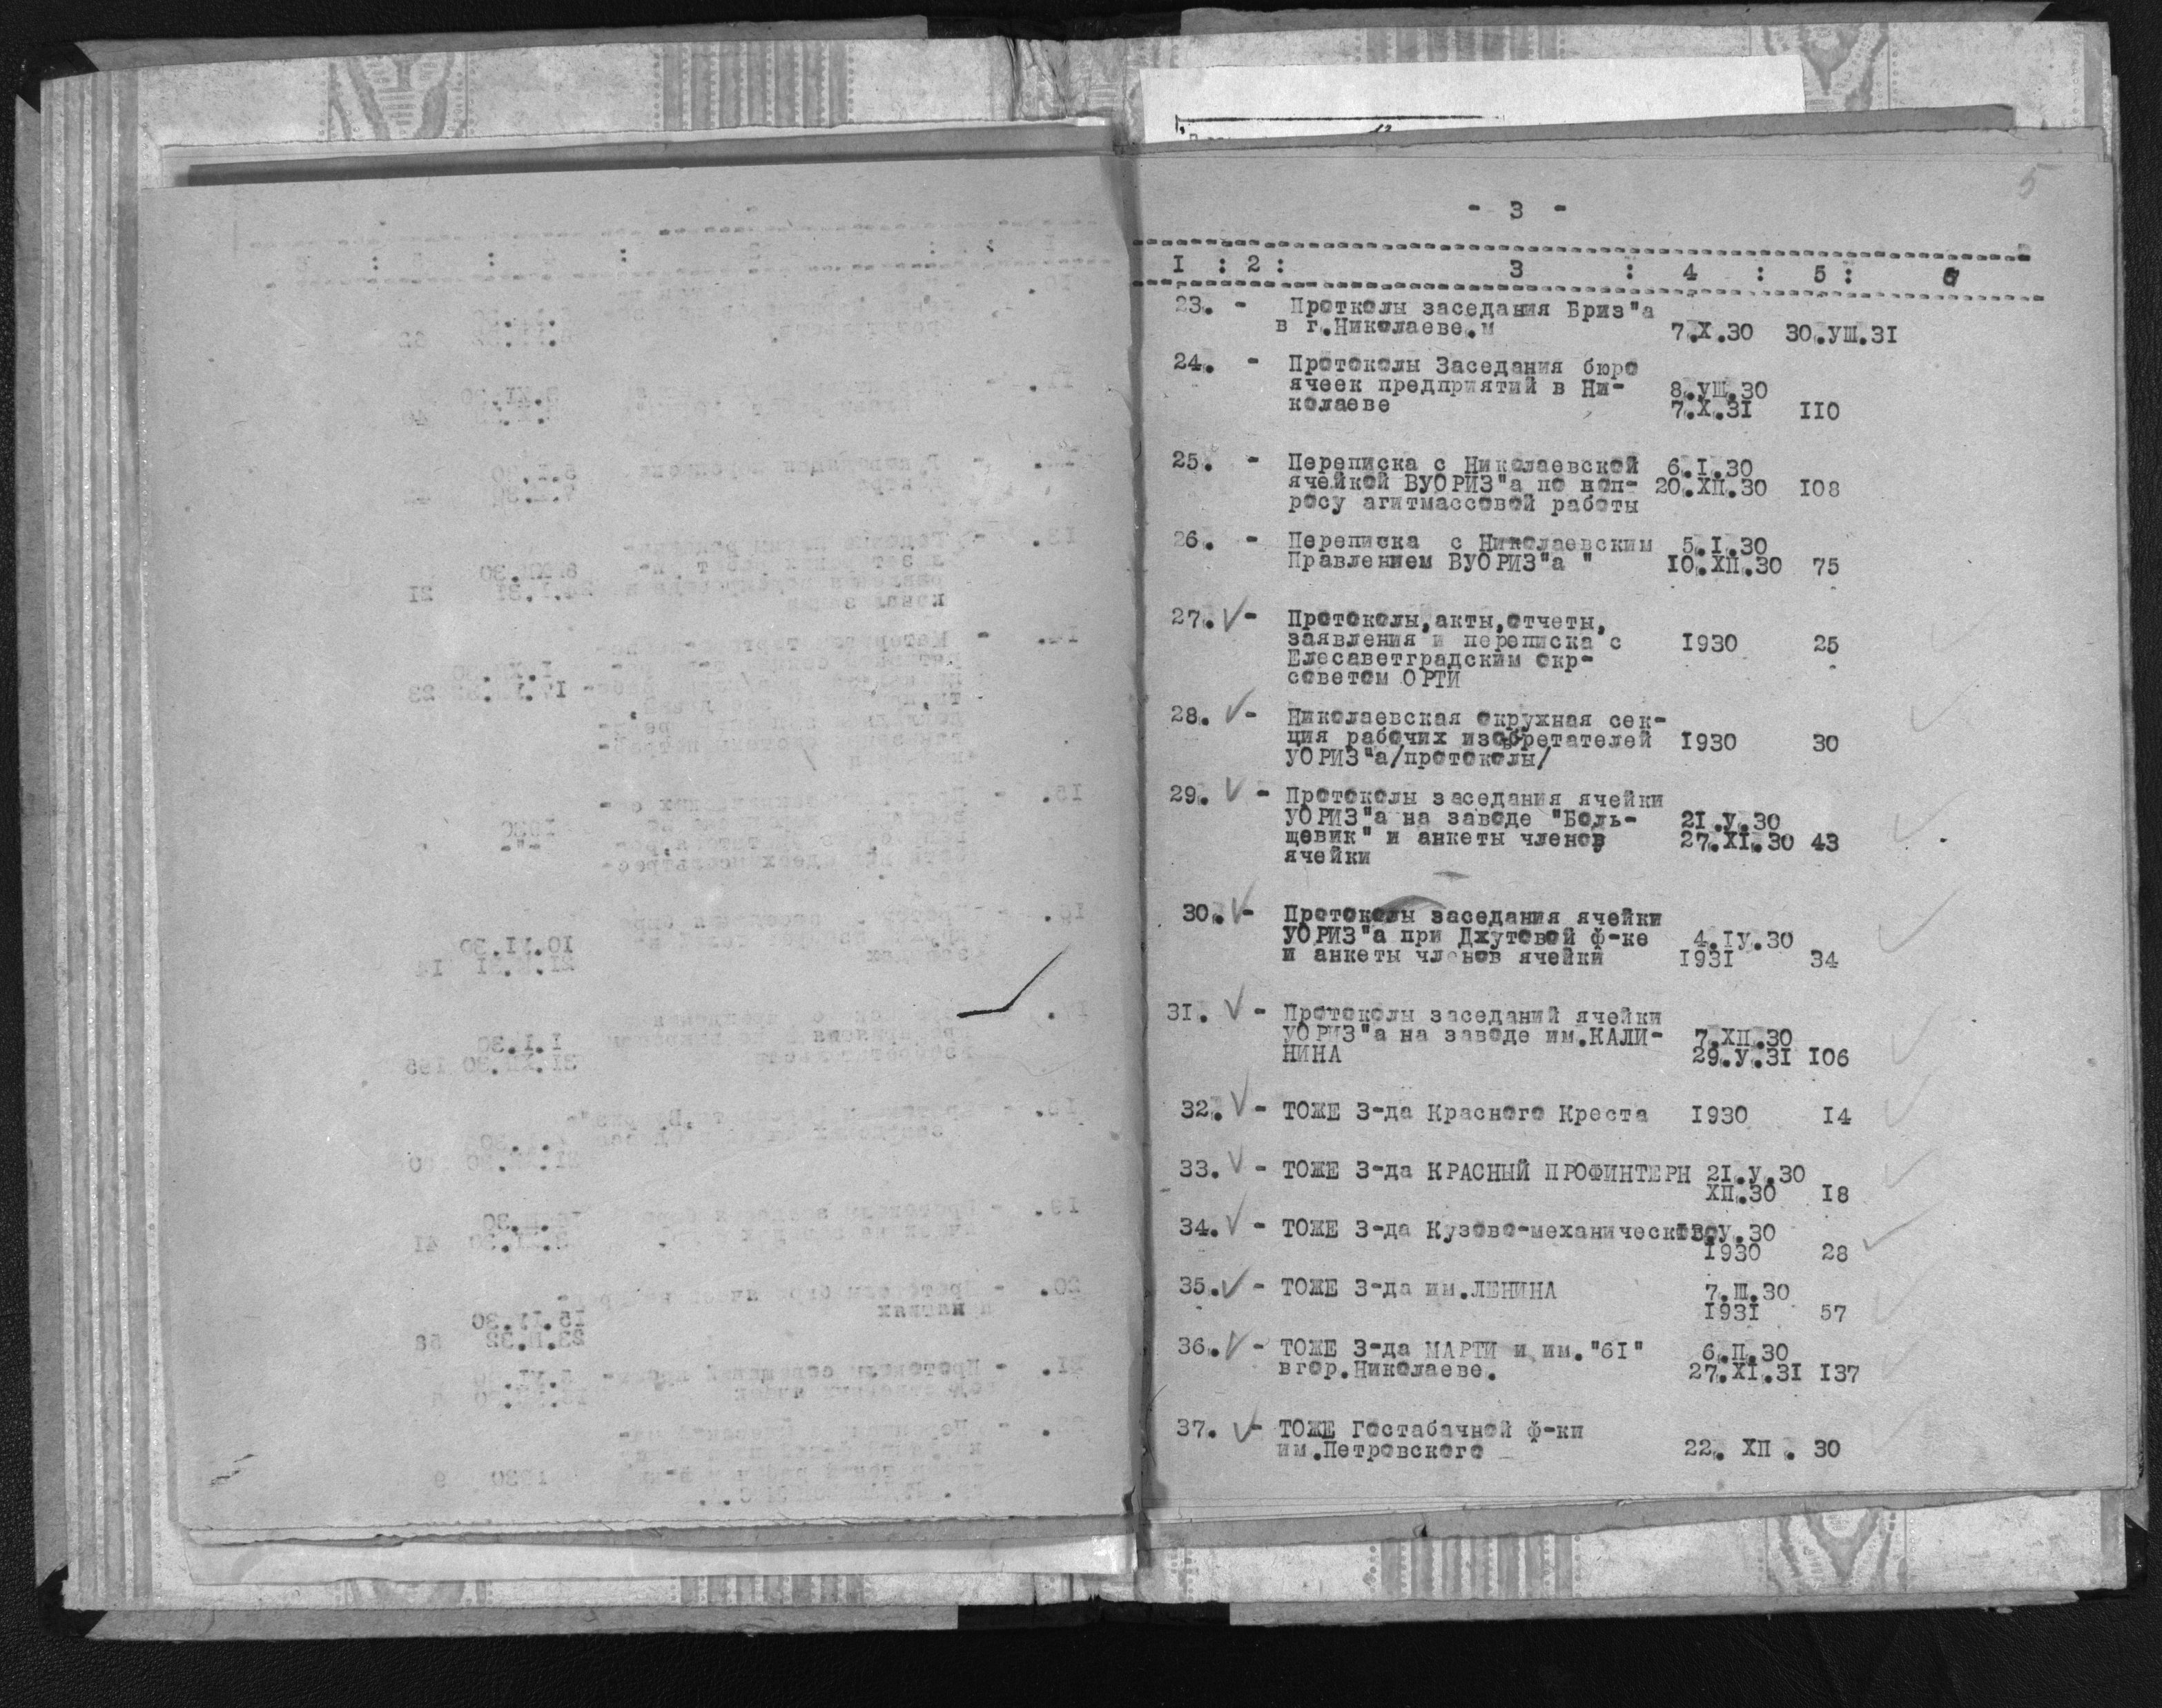 5
- 3 -
I : 2 : 3 : 4 : 5 : 6
23. - Протколы заседания Бриз"а
в г.Николаеве.м 7.X.30 30.УШ.31
24. - Протоколы Заседания бюро
ячеек предприятий в Ни- 8.УШ.30
колаеве 7.X.31 110
25. - Переписка с Николаевской 6.I.30
ячейкой ВУОРИЗ"а по воп- 20.ХП.30 108
росу агитмассовой работы
26. - Переписка с Николаевским 5.I.30
Правлением ВУОРИЗ"а " 10.ХП.30 75
27. V - Протоколы,акты,отчеты,
заявления и переписка с 1930 25
Елесаветградским окр-
советом ОРТИ
28. V - Николаевская окружная сек-
ция рабочих изобретателей 1930 30
УОРИЗ"а/протоколы/
29. V - Протоколы заседания ячейки
УОРИЗ"а на заводе "Боль- 21.У.30
щевик" и анкеты членов 27.XI.30 43
ячейки
30. V - Протоколы заседания ячейки
УОРИЗ"а при Джутовой ф-ке 4.IУ.30
и анкеты членов ячейки 1931 34
31. V - Протоколы заседаний ячейки
УОРИЗ"а на заводе им.КАЛИ- 7.ХП.30
НИНА 29.У.31 106
32. V - ТОЖЕ З-да Красного Креста 1930 14
33. V - ТОЖЕ З-да КРАСНЫЙ ПРОФИНТЕРН 21.У.30
ХП.30 18
34. V - ТОЖЕ З-да Кузово-механического У.30
1930 28
35. V - ТОЖЕ З-да им.ЛЕНИНА 7.Ш.30
1931 57
36. V - ТОЖЕ З-да МАРТИ и им."61" 6.П.30
вгор.Николаеве. 27.XI.31 137
37. V - ТОЖЕ Гостабачной ф-ки
им.Петровского 22. ХП . 30